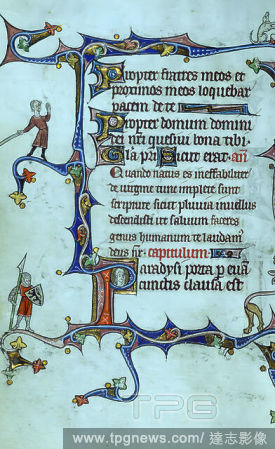 Propter fratres meos et
proximos meos loquebar
pacem de te
Propter domum domini
dei nri quesiui bona tibi
Gla pri Sicut erat añ
Quando natus es ineffabiliter
de uirgine tunc implete sunt
scripture sicut pluuia in uellus
descendisti ut saluum faceres
genus humanum te laudam
deus nr capitulum
Paradysi porta p euā
cunctis clausa est
TPG
www.tpgnews.com/達志影像